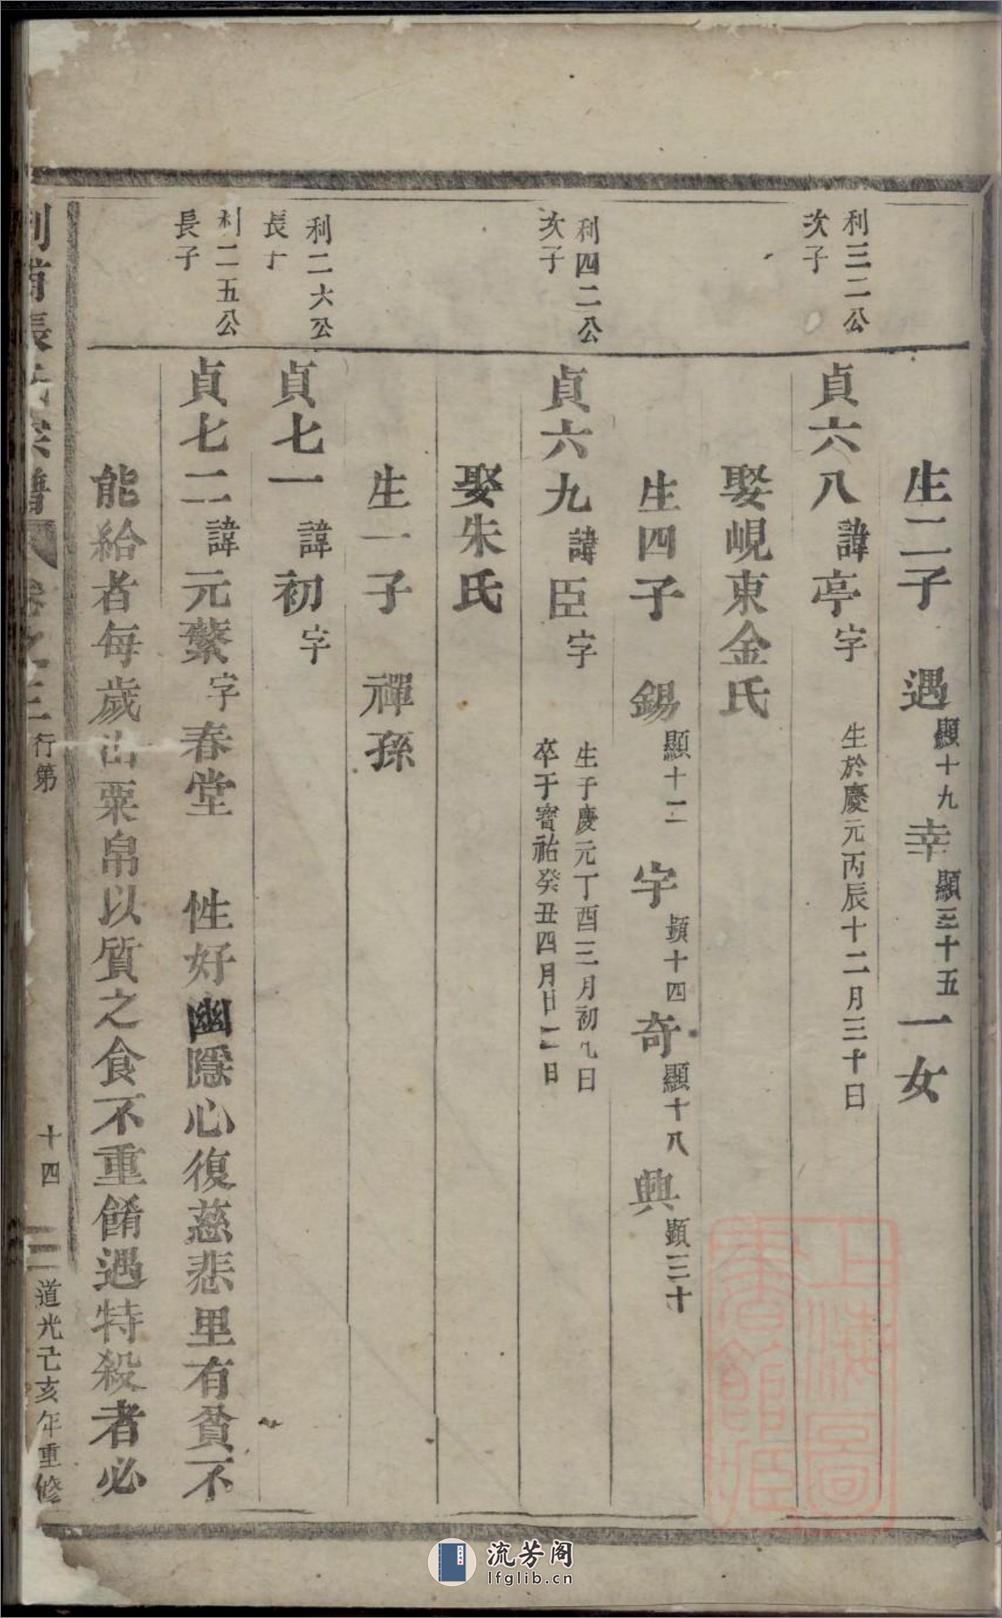 生二子 遇顯十九 幸顯三十五 一女
利三二公
次子
貞六八 諱亭字 生於慶元丙辰十二月三十日
娶峴東金氏
生四子 錫顯十二 宇顯十四 奇顯十八 興顯三十
利四二公
次子
貞六九 諱臣字 生于慶元丁酉三月初九日
卒于寶祐癸丑四月廿二日
娶朱氏
生一子 禪孫
利二六公
長子
貞七一 諱初字
利二五公
長子
貞七二 諱元蘩字春堂 性好幽隱心復慈悲里有貧不
能給者每歲出粟帛以質之食不重餚遇特殺者必
張氏宗譜 卷之三 行第 十四 道光己亥年重修
上海圖書館藏
流芳阁
lfglib.cn